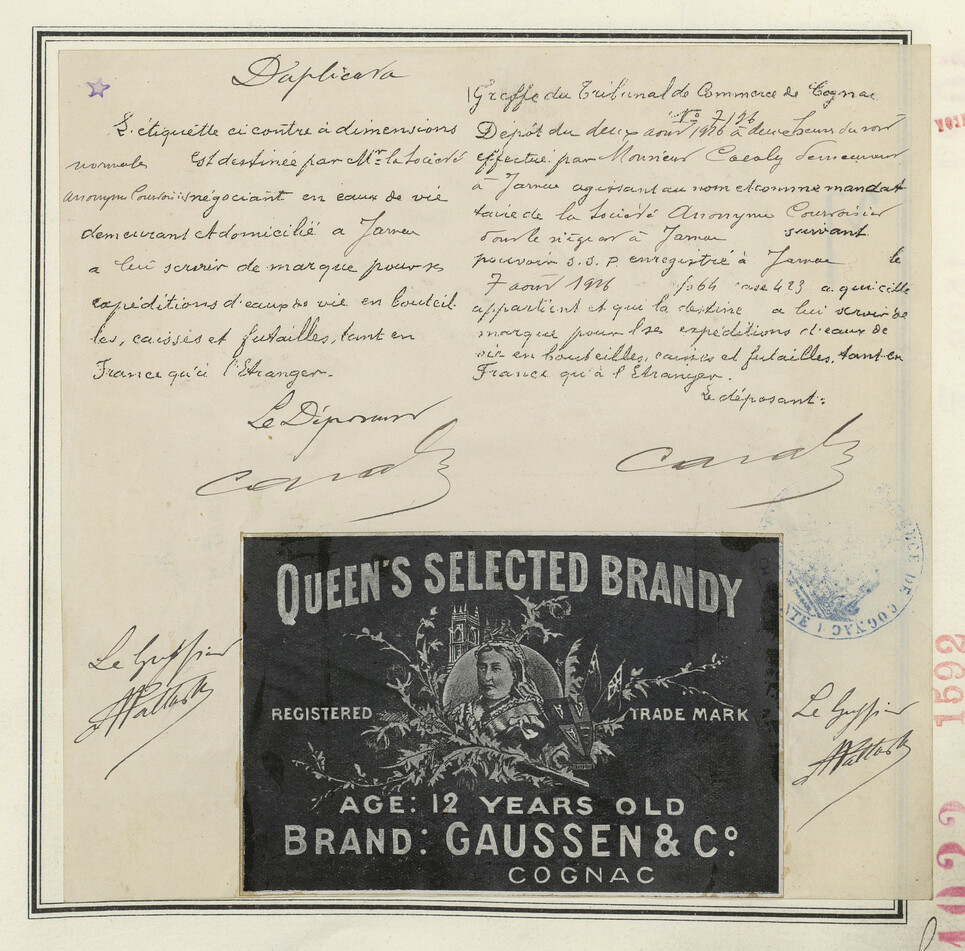 Duplicata
L'étiquette ci contre à dimensions
normales est destinée par Mr. la Société
Anonyme Courvoisier négociant en eaux de vie
demeurant et domicilié a Jarnac
a lui servir de marque pour ses
expéditions d'eaux de vie en bouteil
les, caisses et futailles, tant en
France qu'à l'Etranger.
Le Déposant
Greffe du Tribunal de Commerce de Cognac
No 7126
Dépôt du deux aout 1926 à deux heures du soir
effectué par Monsieur demeurant
à Jarnac agissant au nom et comme mandat
taire de la Société Anonyme Courvoisier
dont le siège est à Jarnac suivant
pouvoir s.s.p. enregistré à Jarnac le
7 aout 1926 fo 64 case 423 a qui elle
appartient et qui la destine a lui servir de
marque pour ses expéditions d'eaux de
vie en bouteilles, caisses et futailles, tant en
France qu'à l'Etranger.
Le déposant:
QUEEN'S SELECTED BRANDY
REGISTERED TRADE MARK
AGE: 12 YEARS OLD
BRAND: GAUSSEN & Co:
COGNAC
Le Greffier
Le Greffier
DE COGNAC
1592
1922